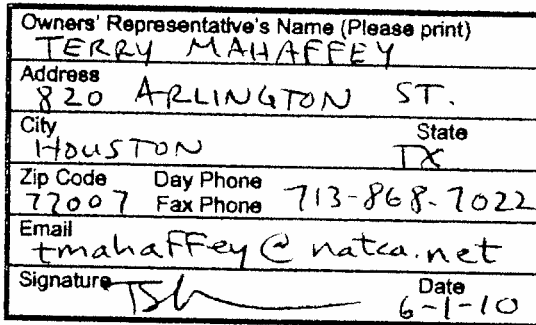 Owners' Representative's Name (Please print)
TERRY MAHAFFEY
Address
820 ARLINGTON ST.
City State
HOUSTON TX
Zip Code Day Phone
77007 Fax Phone 713-868-7022
Email
tmahaffey@natca.net
Signature Date
6-1-10